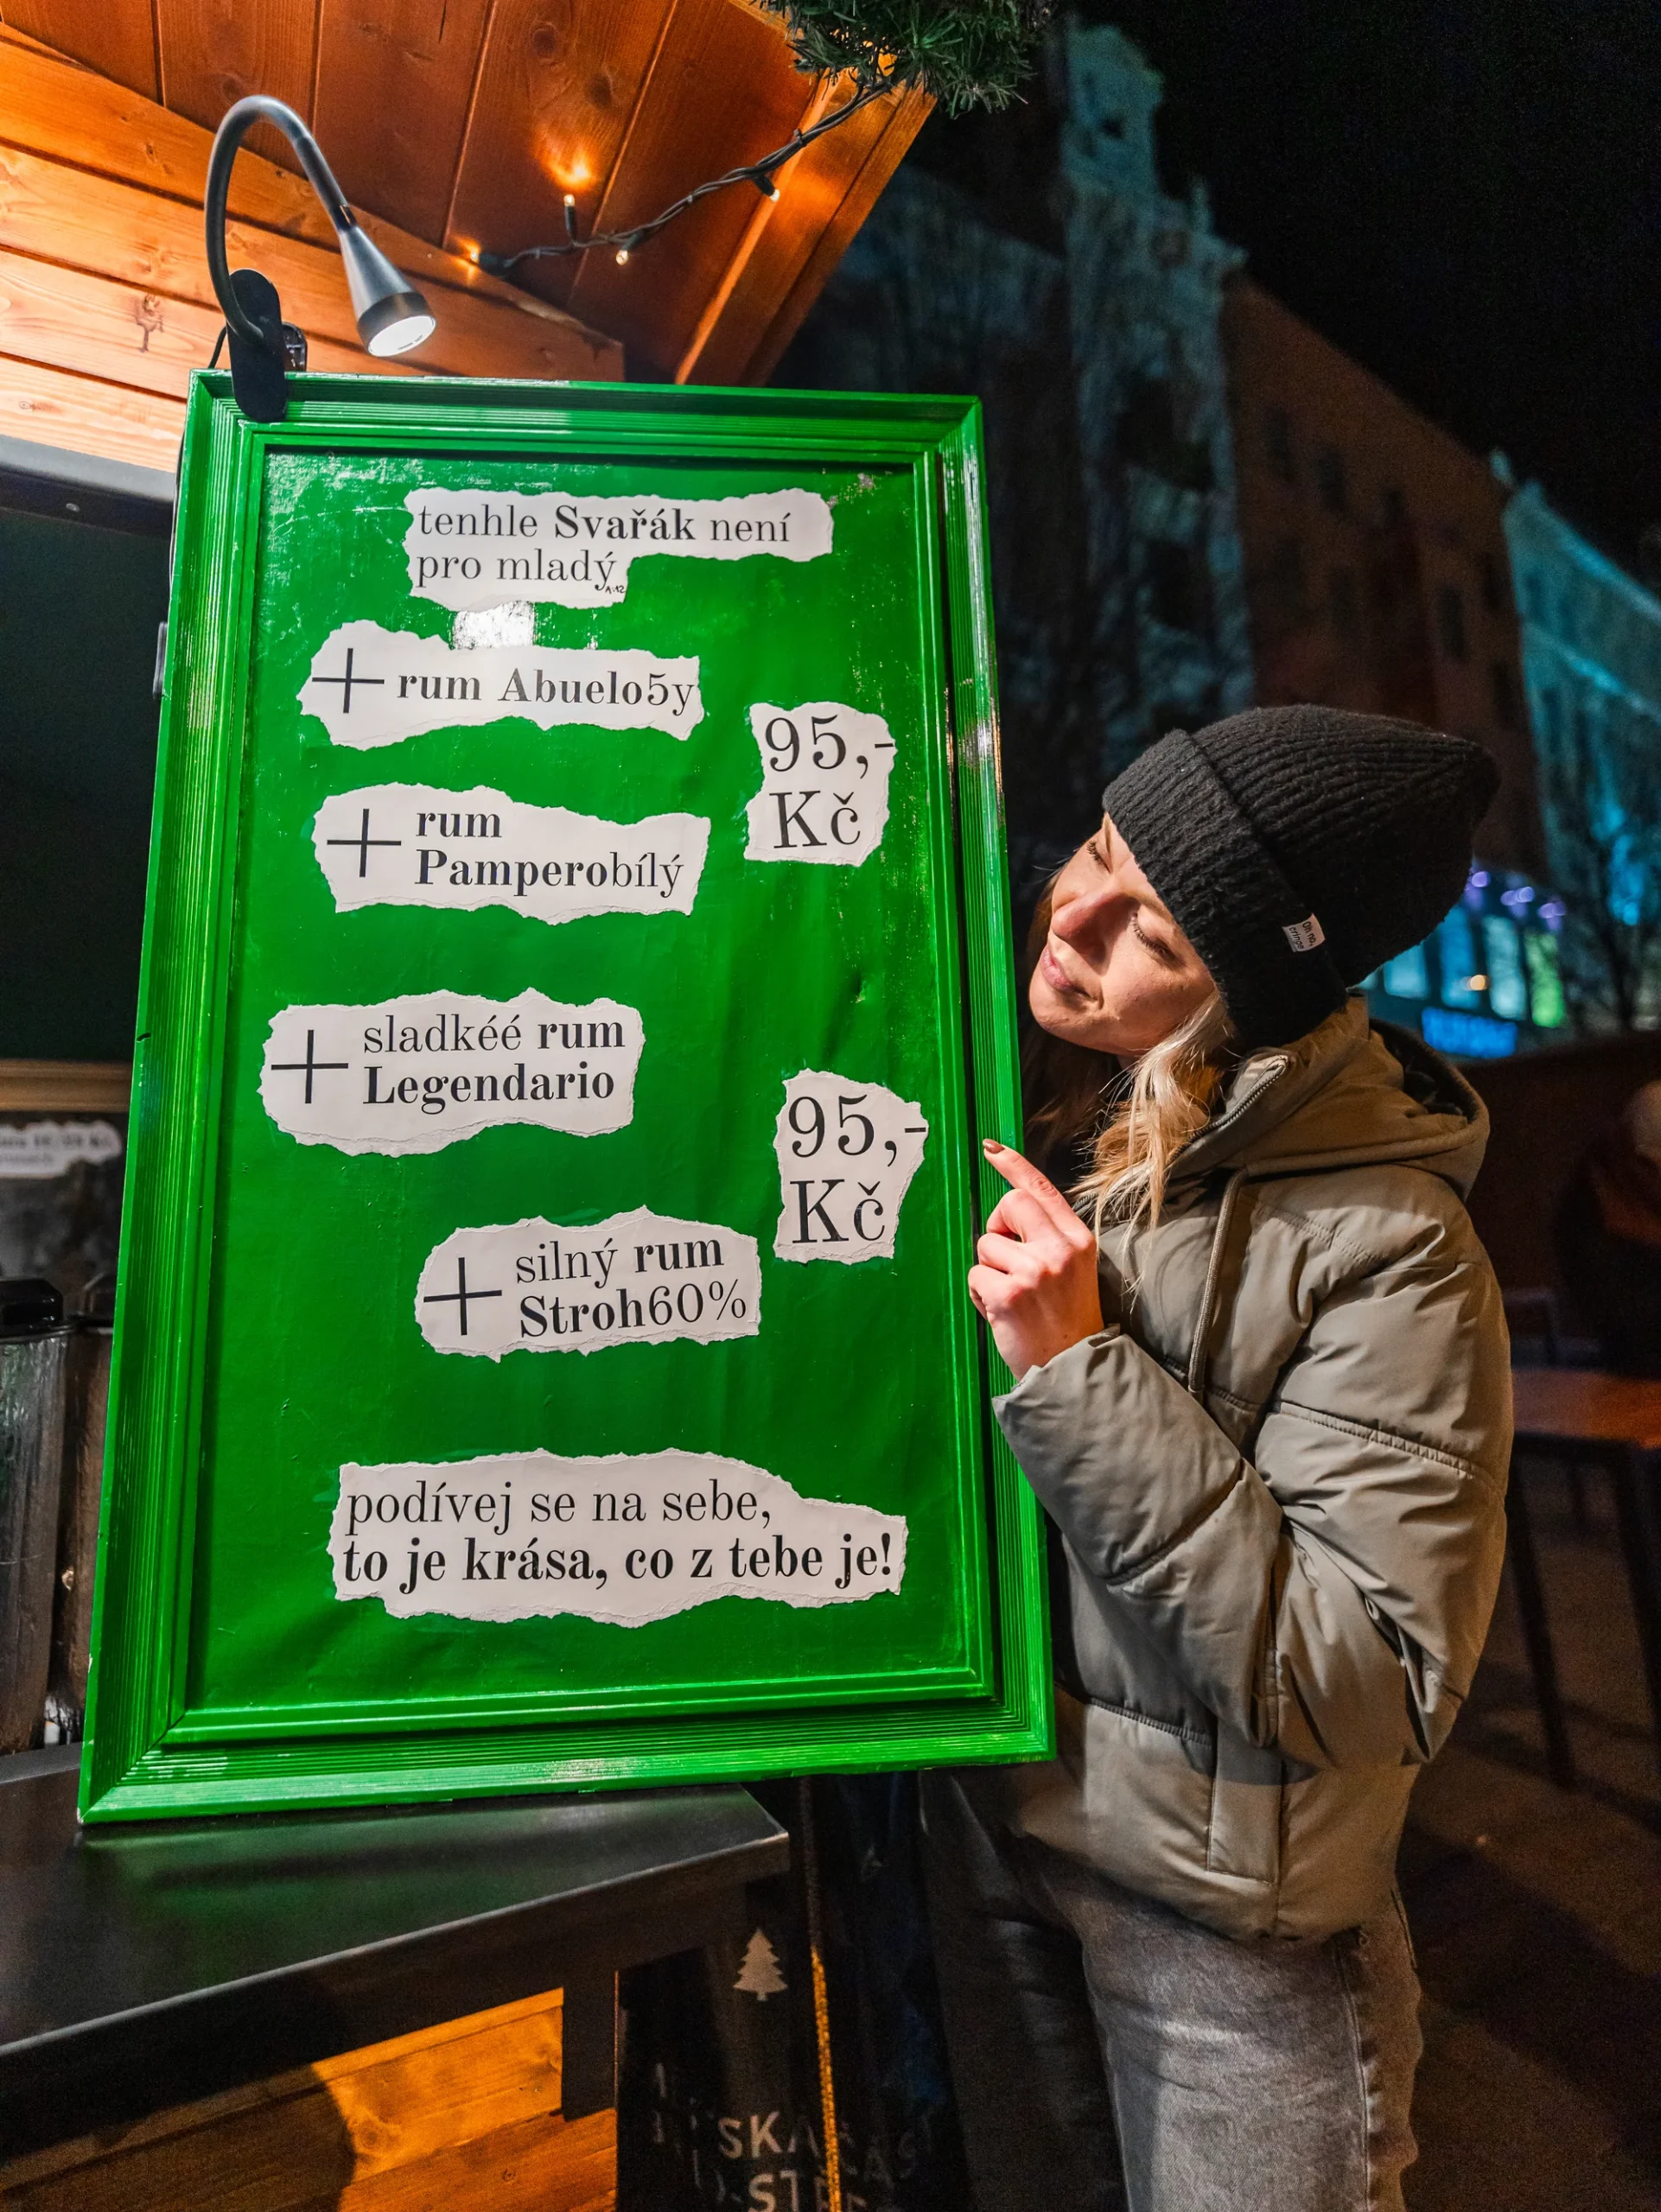 tenhle Svařák není
pro mladý
+ rum Abuelo5y
95,-
Kč
+ rum
Pamperobílý
+ sladkéé rum
Legendario
95,-
Kč
+ silný rum
Stroh60%
podívej se na sebe,
to je krása, co z tebe je!
Oh no,
cringe